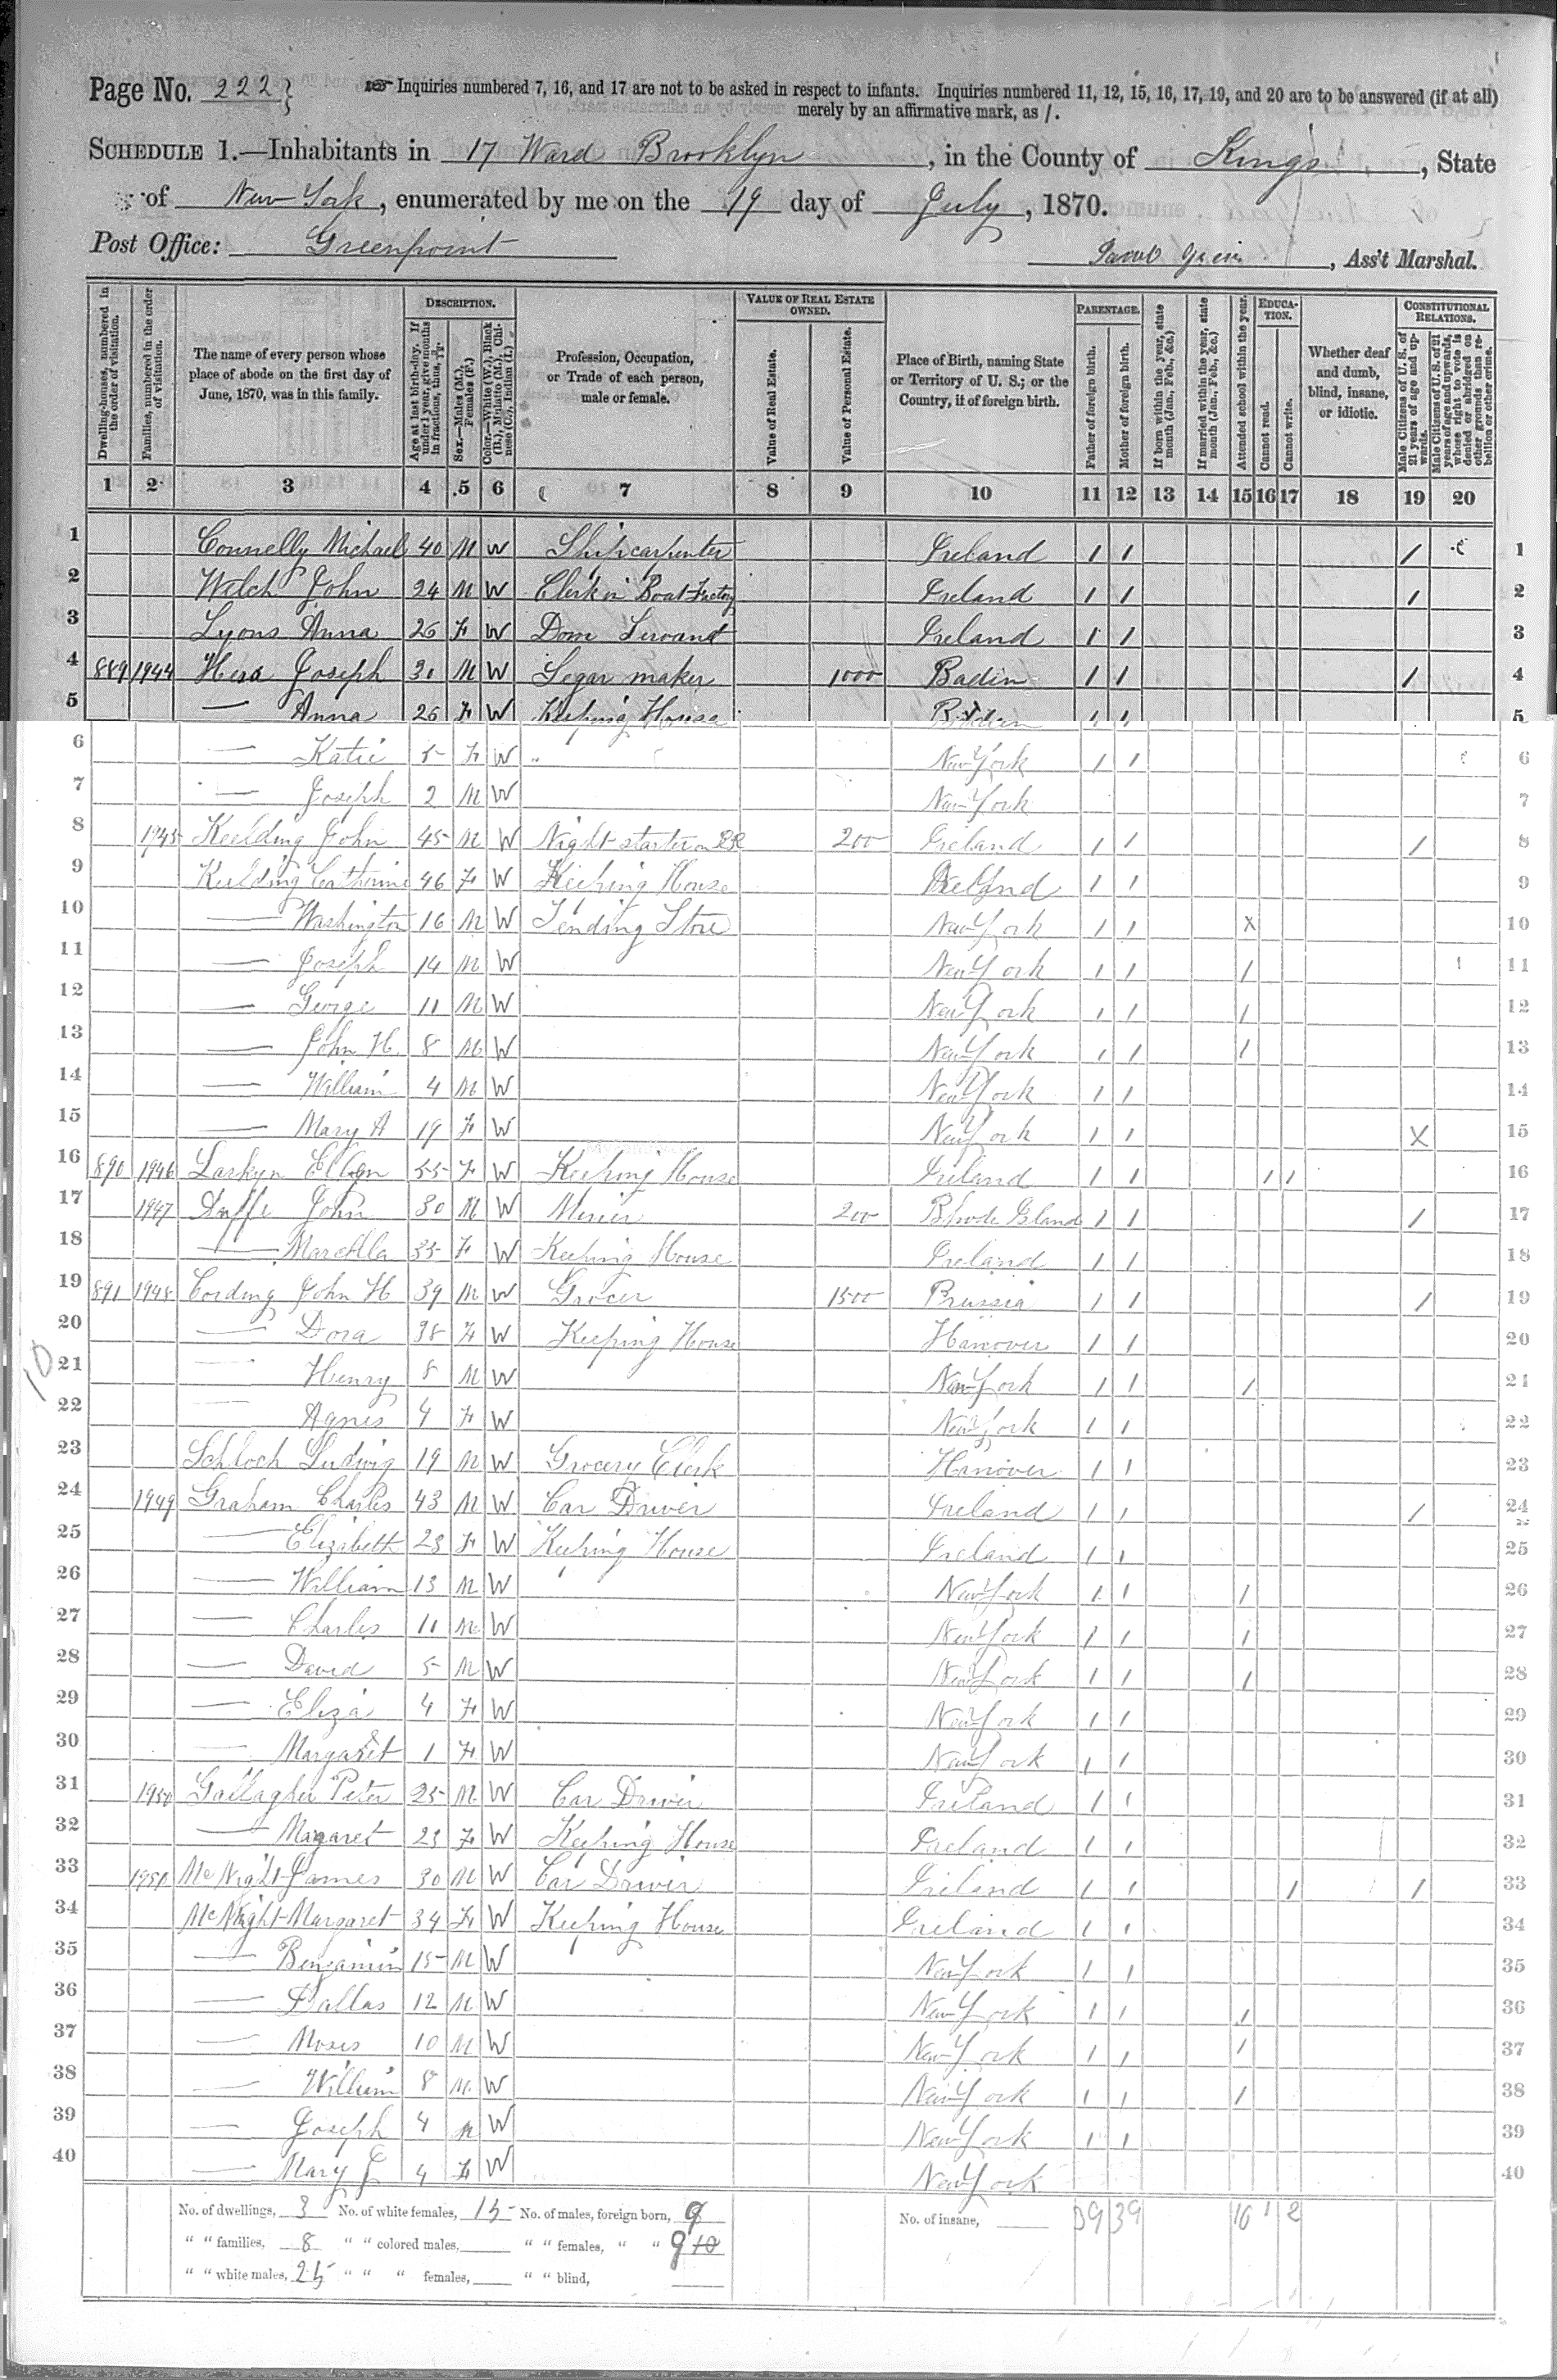 Page No. 222
Inquiries numbered 7, 16, and 17 are not to be asked in respect to infants. Inquiries numbered 11, 12, 15, 16, 17, 19, and 20 are to be answered (if at all)
merely by an affirmative mark, as /.
SCHEDULE 1.—Inhabitants in 17 Ward Brooklyn, in the County of Kings, State
of New York, enumerated by me on the 19 day of July, 1870.
Post Office: Greenpoint
Jacob, Ass't Marshal.
Dwelling-houses, numbered in the order of visitation.
Families, numbered in the order of visitation.
The name of every person whose place of abode on the first day of June, 1870, was in this family.
DESCRIPTION.
Age at last birth-day. If under 1 year, give months in fractions, thus,
Sex.—Males (M.), Females (F.)
Color.—White (W.), Black (B.), Mulatto (M.), Chinese (C.), Indian (I.)
Profession, Occupation, or Trade of each person, male or female.
VALUE OF REAL ESTATE OWNED.
Value of Real Estate.
Value of Personal Estate.
Place of Birth, naming State or Territory of U. S.; or the Country, if of foreign birth.
PARENTAGE.
Father of foreign birth.
Mother of foreign birth.
If born within the year, state month (Jan., Feb., &c.)
If married within the year, state month (Jan., Feb., &c.)
Attended school within the year.
EDUCATION.
Cannot read.
Cannot write.
Whether deaf and dumb, blind, insane, or idiotic.
CONSTITUTIONAL RELATIONS.
Male Citizens of U. S. of 21 years of age and upwards.
Male Citizens of U. S. of 21 years of age and upwards, whose right to vote is denied or abridged on other grounds than rebellion or other crime.
1 2 3 4 5 6 7 8 9 10 11 12 13 14 15 16 17 18 19 20
1 Connelly Michael 40 M W Ship carpenter Ireland / / / 1
2 Welch John 24 M W Clerk in Boat Factory Ireland / / / 2
3 Lyons Anna 26 F W Dom Servant Ireland / / 3
4 889 1944 Hess Joseph 30 M W Segar maker 1000 Baden / / / 4
5 — Anna 26 F W Keeping House Baden / / 5
6 — Katie 5 F W " New York / / 6
7 — Joseph 2 M W New York 7
8 1945 Keelding John 45 M W Night starter on RR 200 Ireland / / / 8
9 Keelding Catherine 46 F W Keeping House Ireland / / 9
10 — Washington 16 M W Tending Store New York / / X 10
11 — Joseph 14 M W New York / / / 11
12 — George 11 M W New York / / / 12
13 — John H. 8 M W New York / / / 13
14 — William 4 M W New York / / 14
15 — Mary A 19 F W New York / / X 15
16 890 1946 Larkyn Ellen 55 F W Keeping House Ireland / / / / 16
17 1947 Duffe John 30 M W 200 Rhode Island / / / 17
18 — Marcella 35 F W Keeping House Ireland / / 18
19 891 1948 Cording John H 39 M W Grocer 1500 Prussia / / / 19
20 — Dora 38 F W Keeping House Hanover / / 20
21 — Henry 8 M W New York / / / 21
22 — Agnes 4 F W New York / / 22
23 Schloch Ludwig 19 M W Grocery Clerk Hanover / / 23
24 1949 Graham Charles 43 M W Car Driver Ireland / / / 24
25 — Elizabeth 28 F W Keeping House Ireland / / 25
26 — William 13 M W New York / / / 26
27 — Charles 11 M W New York / / / 27
28 — David 5 M W New York / / / 28
29 — Eliza 4 F W New York / / 29
30 — Margaret 1 F W New York / / 30
31 1950 Gallagher Peter 25 M W Car Driver Ireland / / 31
32 — Margaret 23 F W Keeping House Ireland / / 32
33 1951 McNight James 30 M W Car Driver Ireland / / / / 33
34 McNight Margaret 34 F W Keeping House Ireland / / 34
35 — Benjamin 15 M W New York / / 35
36 — Dallas 12 M W New York / / / 36
37 — Moses 10 M W New York / / / 37
38 — William 8 M W New York / / / 38
39 — Joseph 4 M W New York / / 39
40 — Mary J 4 F W New York 40
10
No. of dwellings, 3 No. of white females, 15 No. of males, foreign born, 9 No. of insane, 39 39 16 1 2
" " families, 8 " " colored males, " " females, " " 9 10
" " white males, 25 " " " females, " " blind,